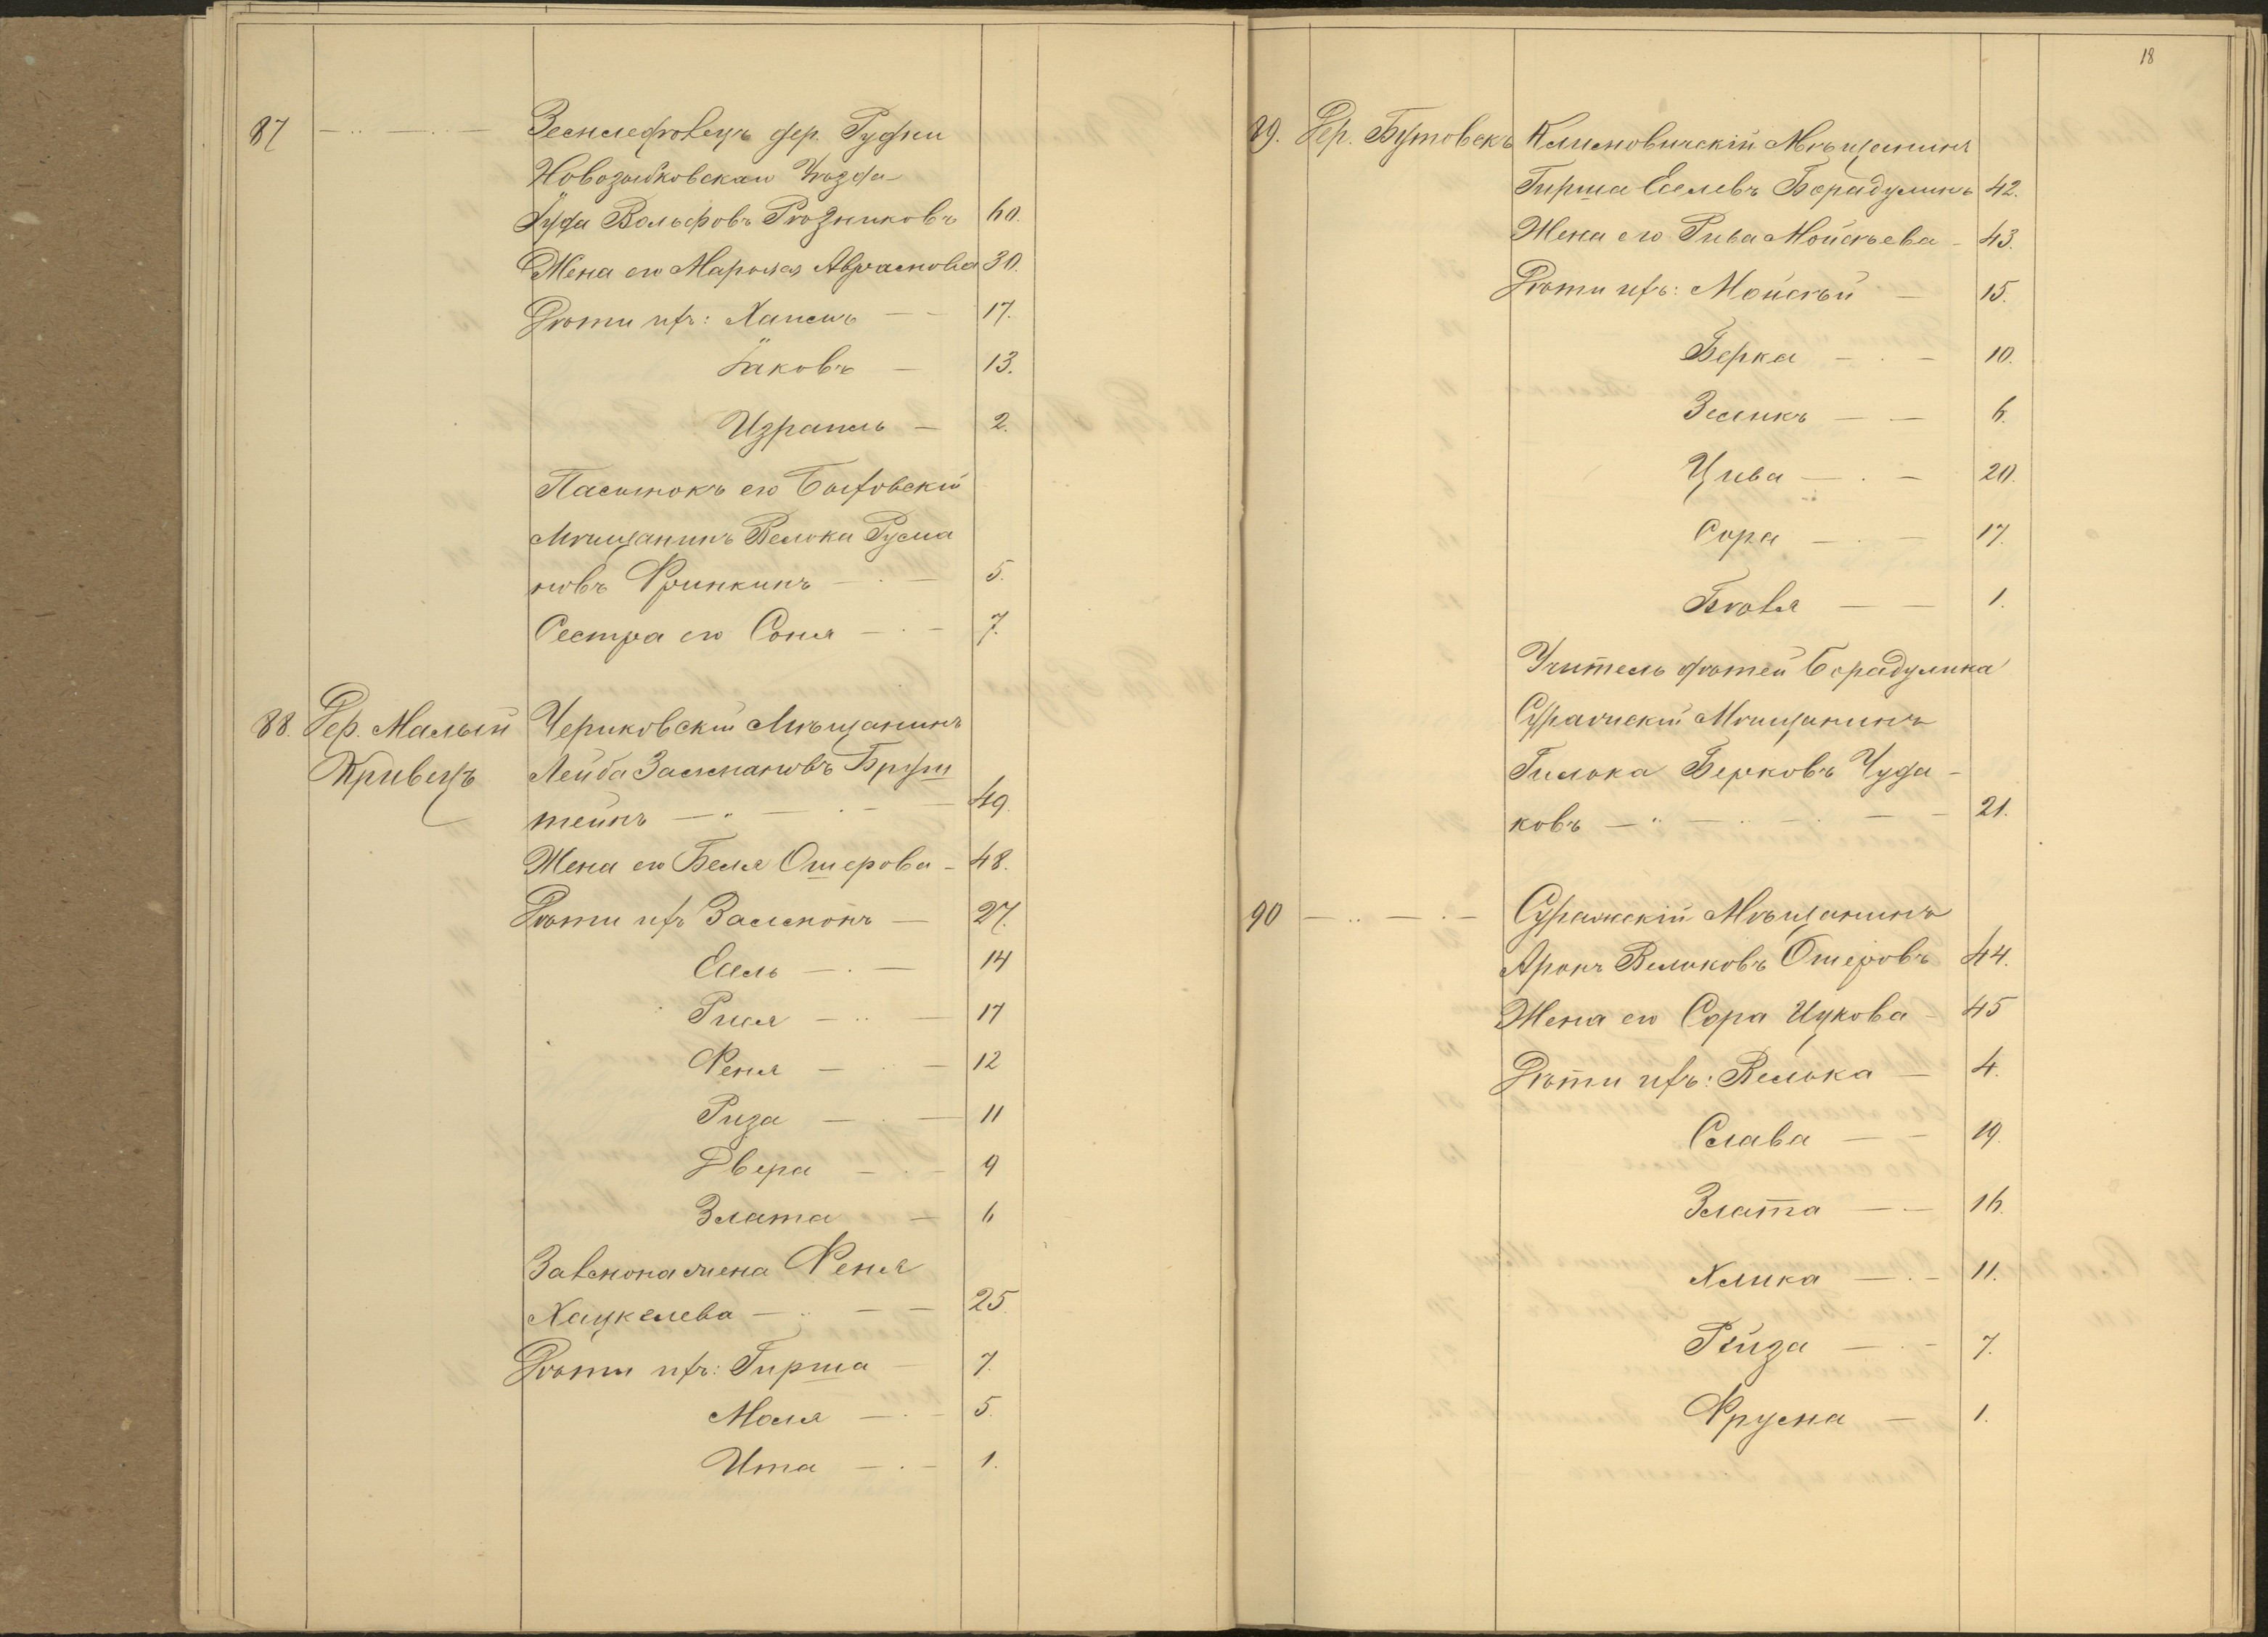 87 — .. — . — Земледѣлецъ дер. Рудни
Новозыбковскаго Уѣзда
Іуда Вольфовъ Рѣзниковъ 60.
Жена его Марьяся Абрамова 30.
Дѣти ихъ: Хаимъ — — 17.
Іаковъ — 13.
Израиль — 2.
Пасынокъ его Быховскій
Мѣщанинъ Велька Рума
новъ Фринкинъ — . — 5.
Сестра его Соня — . — 7.
88. Дер. Малый Чериковскій Мѣщанинъ
Кривецъ Лейба Залмановъ Бруш
тейнъ — .. — . — — 49.
Жена его Беля Ошерова — 48.
Дѣти ихъ Залмонъ — 27.
Есель — . — 14
Рися — .. — 17
Феня — . — 12
Риза — . — 11
Двера — . — 9
Злата — 6
Залмона жена Феня
Хацкелева — .. — — 25
Дѣти ихъ: Гирша — 7.
Моля — . — 5.
Ита — . — 1.
18
89. Дер. Бутовскъ Климовичскій Мѣщанинъ
Гирша Еселевъ Борадулинъ 42.
Жена его Рива Мойсѣева — 43.
Дѣти ихъ: Мойсѣй — 15.
Берка — . — 10.
Зеликъ — — 6.
Цива — . — 20.
Сора — . — 17.
Бейля — — 1.
Учитель дѣтей Борадулина
Суражскій Мѣщанинъ
Гилька Берковъ Чуда-
ковъ — .. — . — . — — 21.
90 — .. — . — Суражскій Мѣщанинъ
Аронъ Вельковъ Ошеровъ 44.
Жена его Сора Ицкова — 45
Дѣти ихъ: Велька — 4.
Слава — — 19.
Злата — — 16.
Хлика — . — 11.
Рейза — . — 7.
Фрума — 1.